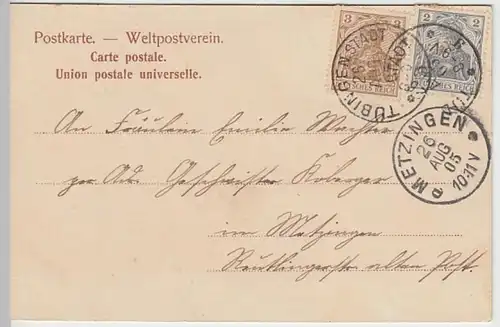 Postkarte. — Weltpostverein.
Carte postale.
Union postale universelle.
3
2
DEUTSCHES REICH
TÜBINGEN STADT
METZINGEN
26
AUG
05
10-11 V
An Fräulein Emilie
per Adr. Geschwister Koberger
in Metzingen
Reutlingerstr alten Post.